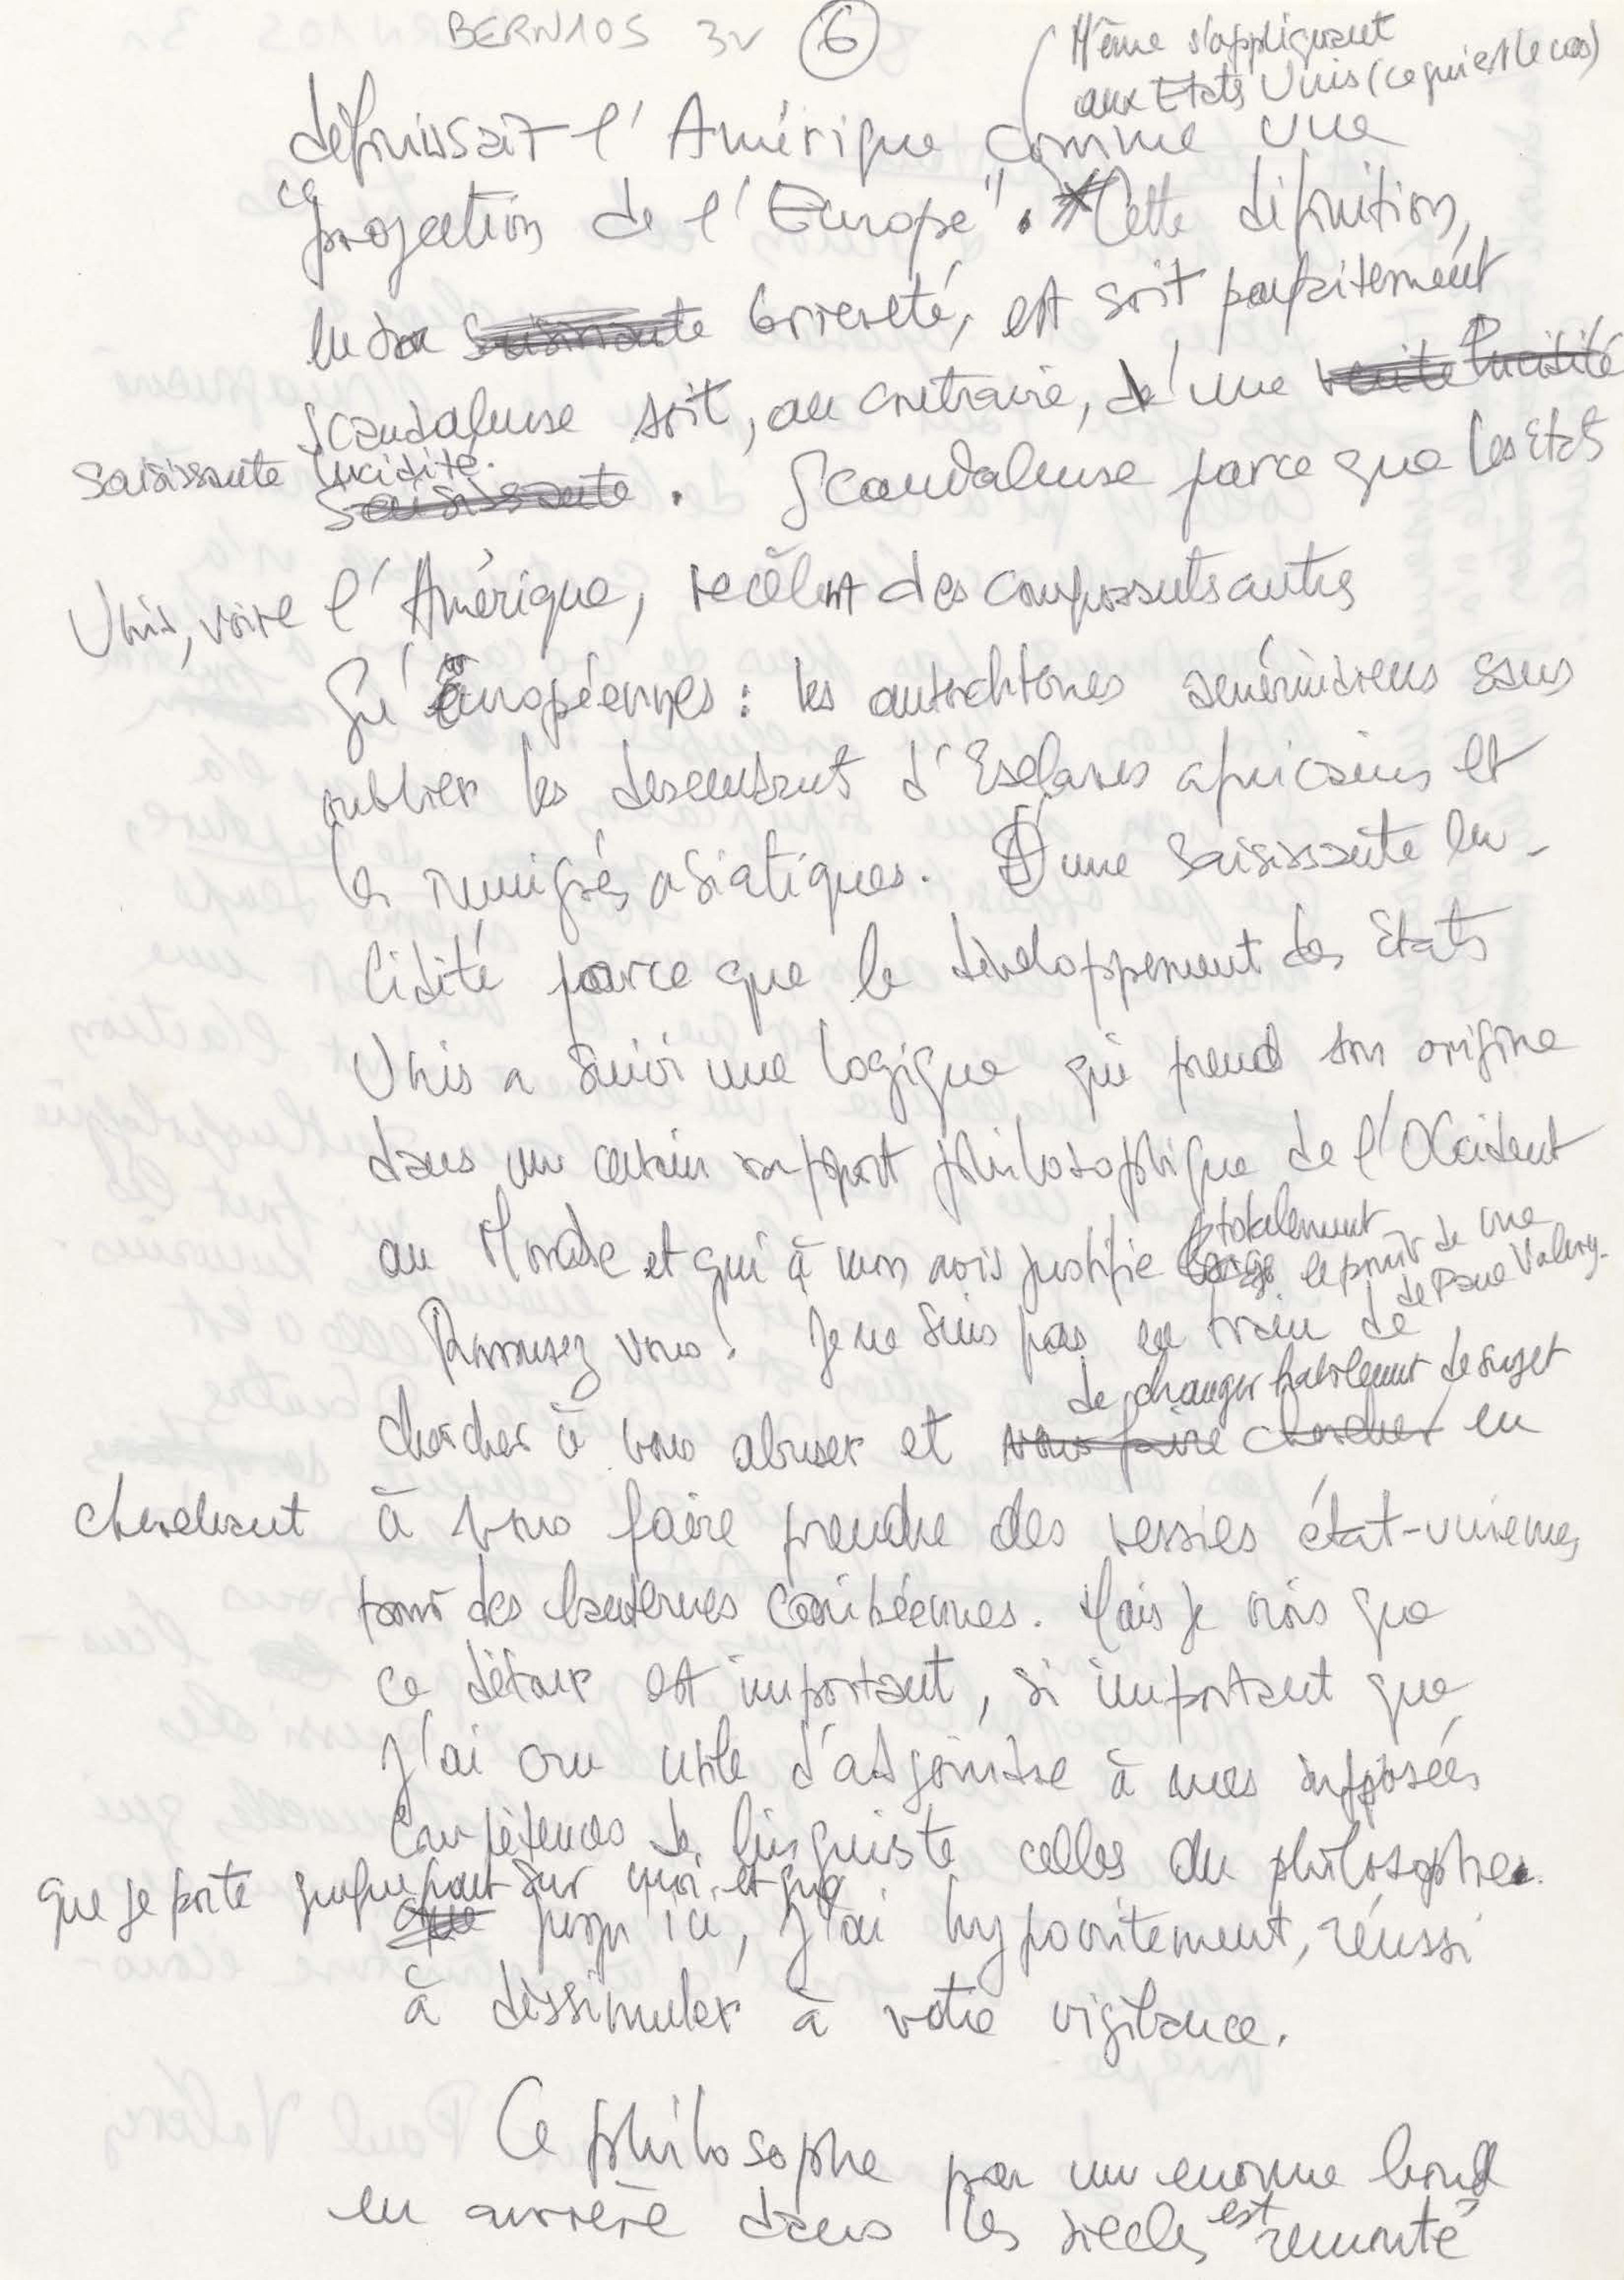 BERN105 3v 6
(Même s'appliquant
aux Etats Unis (ce qui est le cas)
définissait l'Amérique comme une
"projection de l'Europe". Cette définition,
en sa saisissante brièveté, est soit parfaitement
scandaleuse soit, au contraire, d'une lucidité
saisissante lucidité.
saisissante. Scandaleuse parce que les Etats
Unis, voire l'Amérique, recèlent des composants autres
qu'européennes : les autochtones amérindiens sans
oublier les descendants d'Esclaves africains et
les immigrés asiatiques. D'une saisissante lu-
cidité parce que le développement des Etats
Unis a suivi une logique qui prend son origine
dans un certain rapport philosophique de l'Occident
au Monde et qui à mon avis justifie totalement le point de vue
de Paul Valéry.
Rassurez vous ! Je ne suis pas en train de
de changer habilement de sujet
chercher à vous abuser et vous faire chercher en
cherchant à vous faire prendre des vessies état-uniennes
pour des lanternes caribéennes. Mais je crois que
ce détour est important, si important que
j'ai cru utile d'adjoindre à mes supposées
compétences de linguiste celles du philosophe.
que je porte quelque part sur moi, et que
que jusqu'ici, j'ai hypocritement, réussi
à dissimuler à votre vigilance.
Ce philosophe par un enorme bond
en arrière dans les siècles est remonté